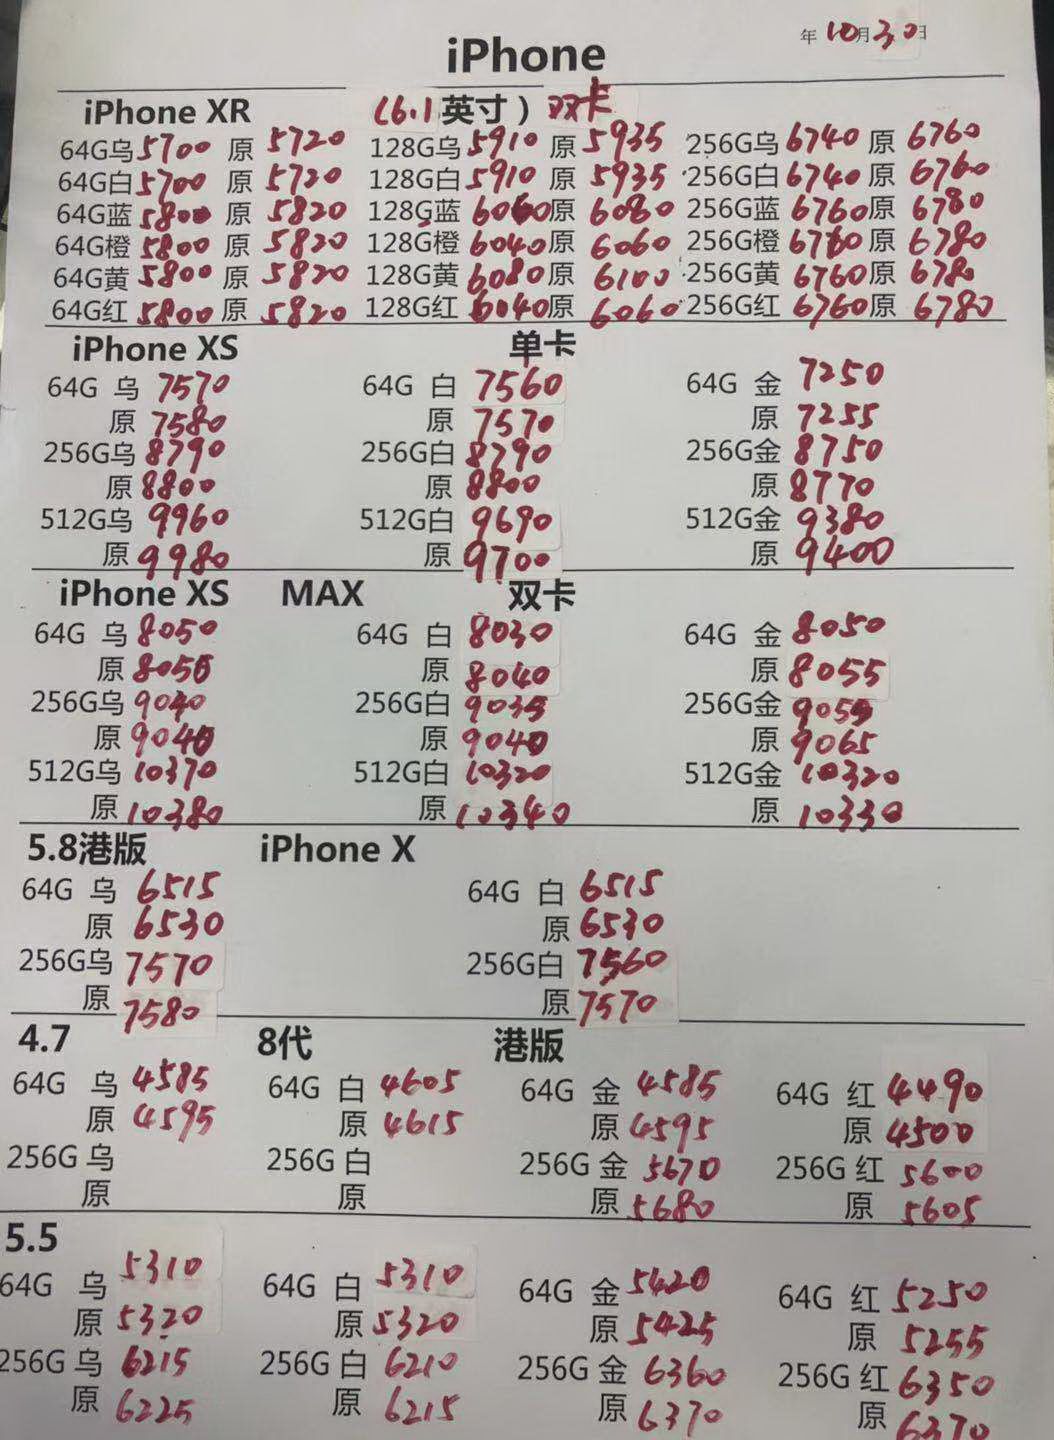 年10月30日
iPhone
iPhone XR (6.1英寸) 双卡
64G乌5700 原 5720 128G乌5910 原 5935 256G乌6740 原 6760
64G白5700 原 5720 128G白5910 原 5935 256G白6740 原 6760
64G蓝5800 原 5820 128G蓝 6060原 6080 256G蓝 6760原 6780
64G橙5800 原 5820 128G橙6040原 6060 256G橙 6760原 6780
64G黄5800 原 5820 128G黄6080原 6100 256G黄 6760原 6780
64G红5800原 5820 128G红 6040原 6060 256G红 6760原 6780
iPhone XS 单卡
64G 乌 7570 64G 白 7560 64G 金 7250
原 7580 原 7570 原 7255
256G乌 8790 256G白 8790 256G金 8750
原 8800 原 8800 原 8770
512G乌 9960 512G白 9690 512G金 9380
原 9980 原 9700 原 9400
iPhone XS MAX 双卡
64G 乌 8050 64G 白 8030 64G 金 8050
原 8055 原 8040 原 8055
256G乌 9040 256G白 9035 256G金 9055
原 9040 原 9040 原 9065
512G乌 10370 512G白 10320 512G金 10320
原 10380 原 10340 原 10330
5.8港版 iPhone X
64G 乌 6515 64G 白 6515
原 6530 原 6530
256G乌 7570 256G白 7560
原 7580 原 7570
4.7 8代 港版
64G 乌 4585 64G 白 4605 64G 金 4585 64G 红 4490
原 4595 原 4615 原 4595 原 4500
256G 乌 256G 白 256G 金 5670 256G 红 5600
原 原 原 5680 原 5605
5.5
64G 乌 5310 64G 白 5310 64G 金 5420 64G 红 5250
原 5320 原 5320 原 5425 原 5255
256G 乌 6215 256G 白 6210 256G 金 6360 256G 红 6350
原 6225 原 6215 原 6370 原 6370